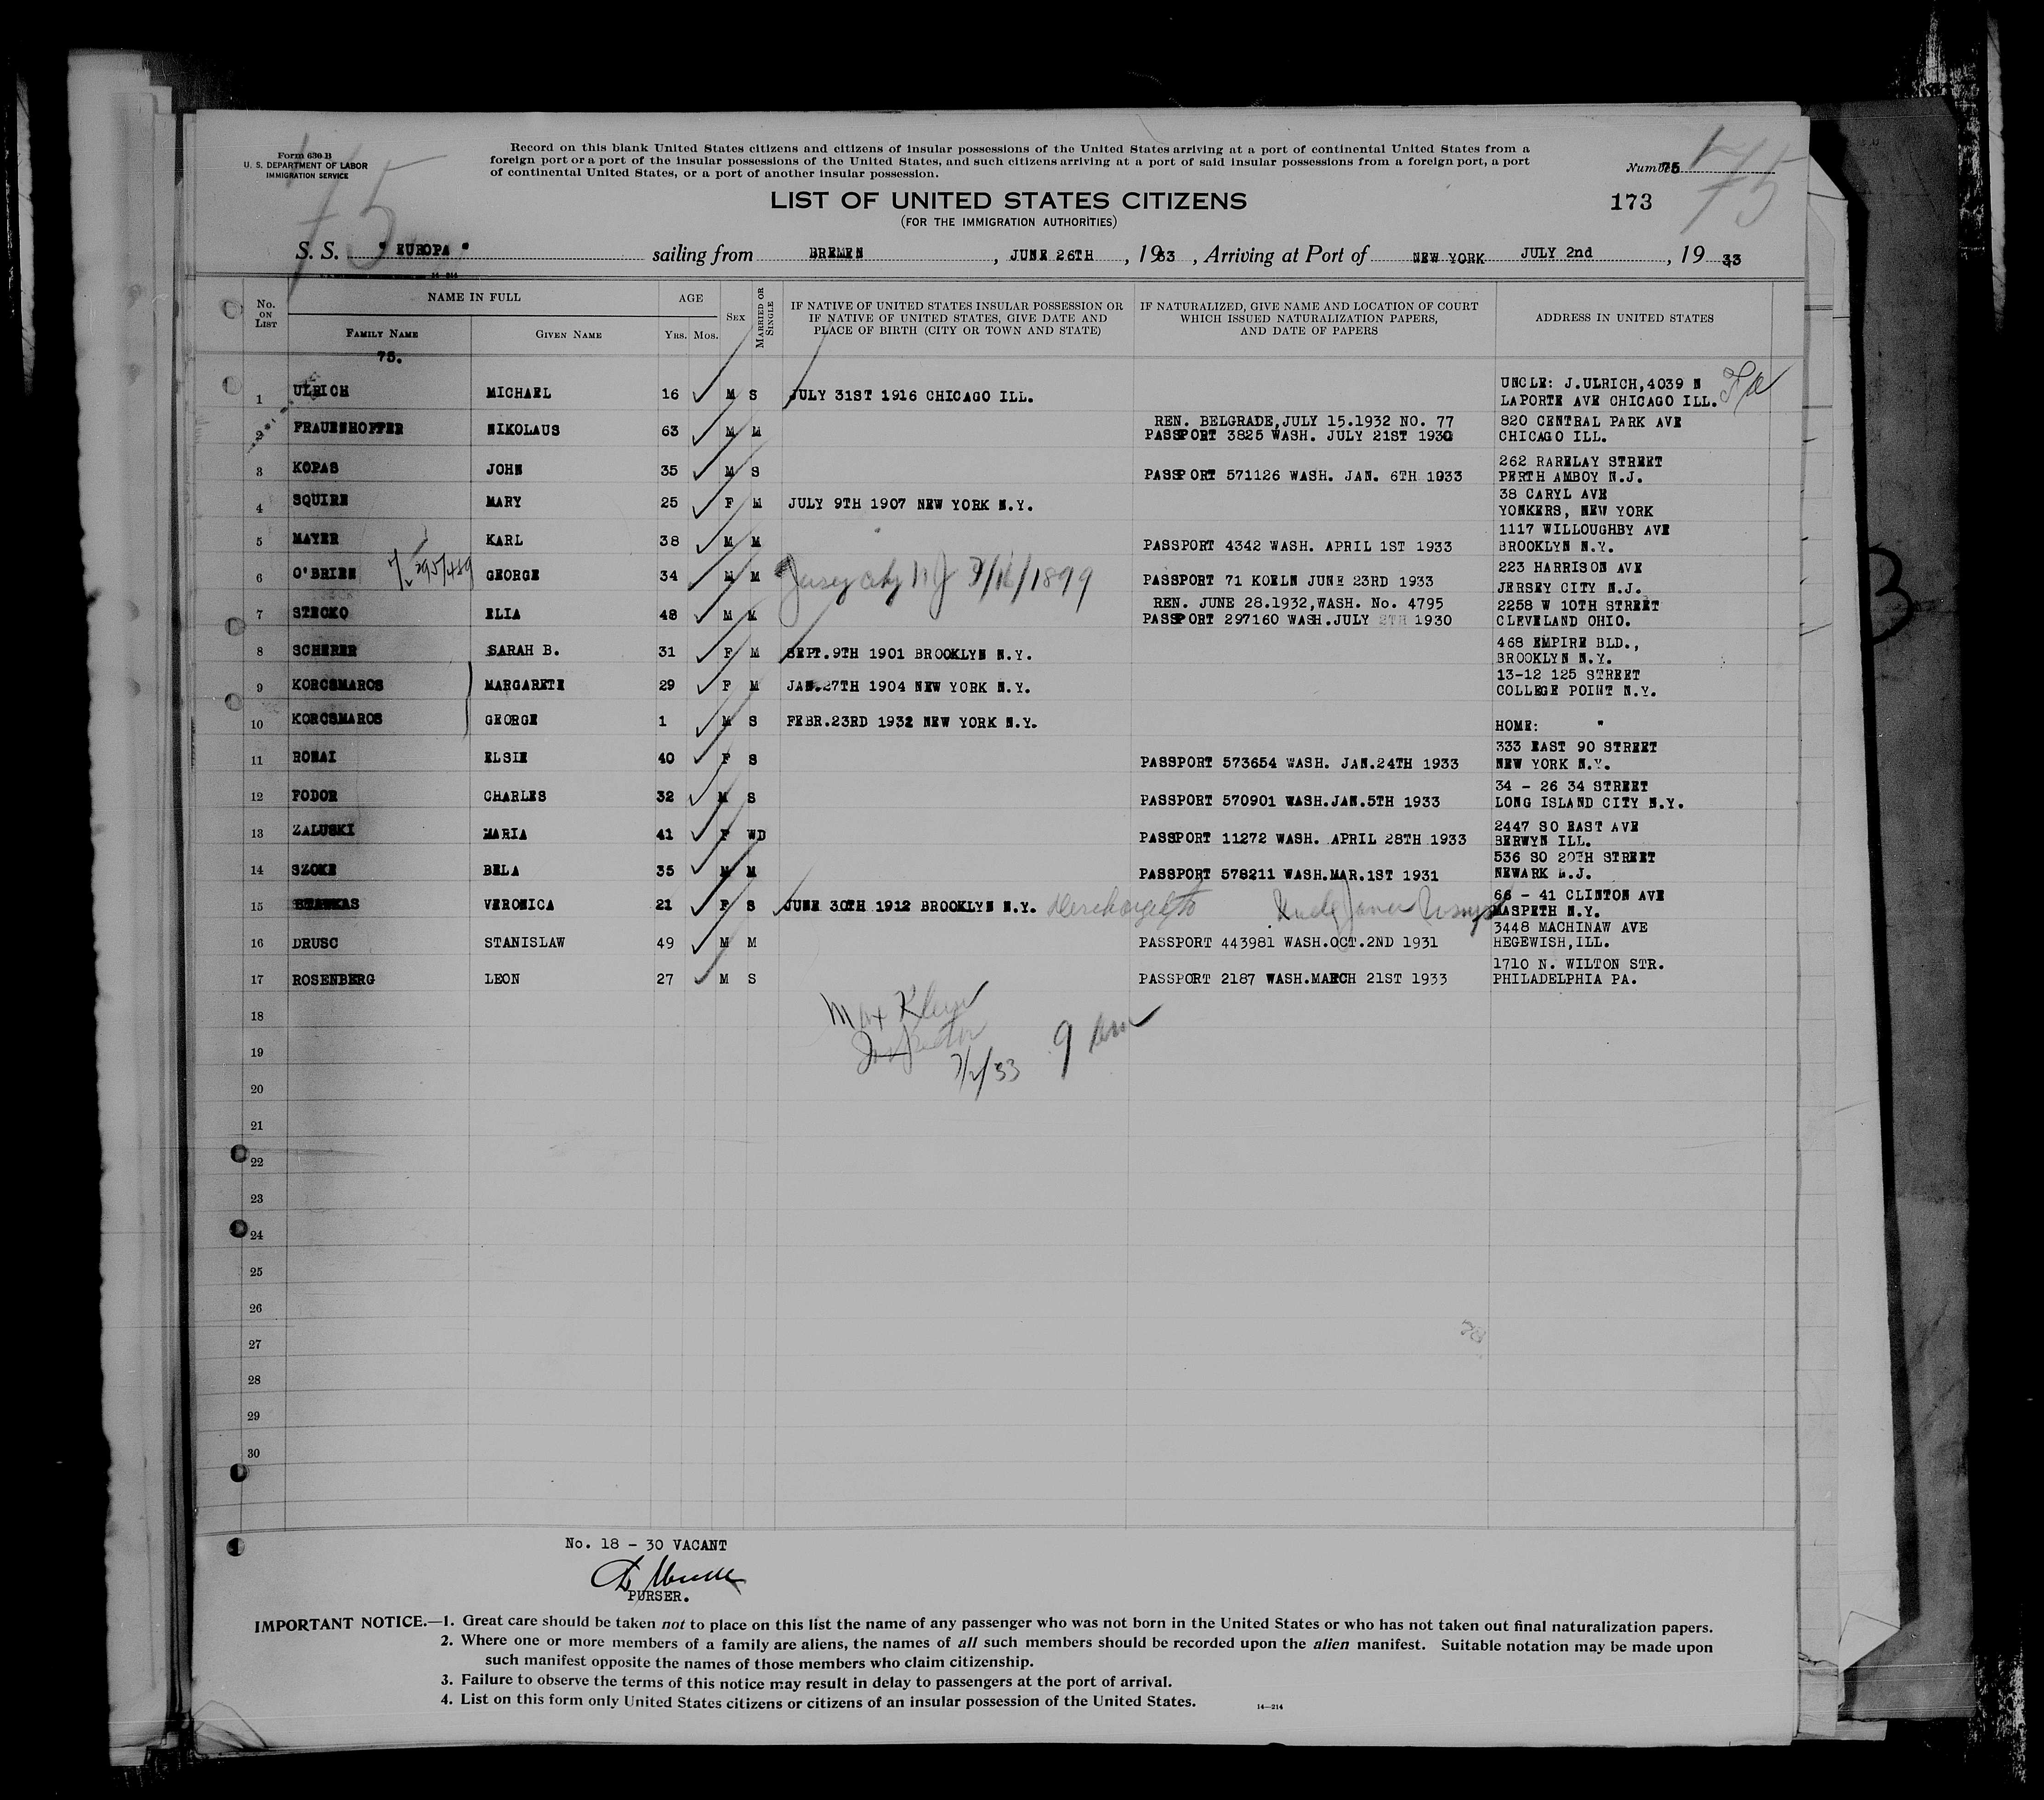 Form 630 B
U. S. DEPARTMENT OF LABOR
IMMIGRATION SERVICE
Record on this blank United States citizens and citizens of insular possessions of the United States arriving at a port of continental United States from a
foreign port or a port of the insular possessions of the United States, and such citizens arriving at a port of said insular possessions from a foreign port, a port
of continental United States, or a port of another insular possession.
Number 75
75
75
173
LIST OF UNITED STATES CITIZENS
(FOR THE IMMIGRATION AUTHORITIES)
S. S. " EUROPA " sailing from BREMEN , JUNE 26TH , 1933 , Arriving at Port of NEW YORK JULY 2nd , 19 33
14-214
No. ON LIST
NAME IN FULL
FAMILY NAME GIVEN NAME
AGE
YRS. MOS.
SEX
MARRIED OR SINGLE
IF NATIVE OF UNITED STATES INSULAR POSSESSION OR
IF NATIVE OF UNITED STATES, GIVE DATE AND
PLACE OF BIRTH (CITY OR TOWN AND STATE)
IF NATURALIZED, GIVE NAME AND LOCATION OF COURT
WHICH ISSUED NATURALIZATION PAPERS,
AND DATE OF PAPERS
ADDRESS IN UNITED STATES
75.
1 ULRICH MICHAEL 16 M S JULY 31ST 1916 CHICAGO ILL. UNCLE: J.ULRICH,4039 N
LAPORTE AVE CHICAGO ILL.
2 FRAUENHOFFER NIKOLAUS 63 M M REN. BELGRADE,JULY 15.1932 NO. 77 820 CENTRAL PARK AVE
PASSPORT 3825 WASH. JULY 21ST 1930 CHICAGO ILL.
3 KOPAS JOHN 35 M S PASSPORT 571126 WASH. JAN. 6TH 1933 262 RARELAY STREET
PERTH AMBOY N.J.
4 SQUIRE MARY 25 F M JULY 9TH 1907 NEW YORK N.Y. 38 CARYL AVE
YONKERS, NEW YORK
5 MAYER KARL 38 M M PASSPORT 4342 WASH. APRIL 1ST 1933 1117 WILLOUGHBY AVE
BROOKLYN N.Y.
6 O'BRIEN GEORGE 34 M M Jersey City NJ /1899 PASSPORT 71 KOELN JUNE 23RD 1933 223 HARRISON AVE
JERSEY CITY N.J.
7 STECKO ELIA 48 M M REN. JUNE 28.1932,WASH. No. 4795 2258 W 10TH STREET
PASSPORT 297160 WASH.JULY 1930 CLEVELAND OHIO.
8 SCHERER SARAH B. 31 F M SEPT.9TH 1901 BROOKLYN N.Y. 468 EMPIRE BLD.,
BROOKLYN N.Y.
9 KORCSMAROS MARGARETE 29 F M JAN.27TH 1904 NEW YORK N.Y. 13-12 125 STREET
COLLEGE POINT N.Y.
10 KORCSMAROS GEORGE 1 M S FEBR.23RD 1932 NEW YORK N.Y. HOME: "
11 RONAI ELSIE 40 F S PASSPORT 573654 WASH. JAN.24TH 1933 333 EAST 90 STREET
NEW YORK N.Y.
12 FODOR CHARLES 32 M S PASSPORT 570901 WASH.JAN.5TH 1933 34 - 26 34 STREET
LONG ISLAND CITY N.Y.
13 ZALUSKI MARIA 41 F WD PASSPORT 11272 WASH. APRIL 28TH 1933 2447 SO EAST AVE
BERWYN ILL.
14 SZOKE BELA 35 M M PASSPORT 578211 WASH.MAR.1ST 1931 536 SO 20TH STREET
NEWARK N.J.
15 VERONICA 21 F S JUNE 30TH 1912 BROOKLYN N.Y. 66 - 41 CLINTON AVE
MASPETH N.Y.
16 DRUSC STANISLAW 49 M M PASSPORT 443981 WASH.OCT.2ND 1931 3448 MACHINAW AVE
HEGEWISH,ILL.
17 ROSENBERG LEON 27 M S PASSPORT 2187 WASH.MARCH 21ST 1933 1710 N. WILTON STR.
PHILADELPHIA PA.
18
Max Klein
Inspector
7/2/33
19
20
21
22
23
24
25
26
27
28
29
30
No. 18 - 30 VACANT
PURSER.
IMPORTANT NOTICE.—1. Great care should be taken not to place on this list the name of any passenger who was not born in the United States or who has not taken out final naturalization papers.
2. Where one or more members of a family are aliens, the names of all such members should be recorded upon the alien manifest. Suitable notation may be made upon
such manifest opposite the names of those members who claim citizenship.
3. Failure to observe the terms of this notice may result in delay to passengers at the port of arrival.
4. List on this form only United States citizens or citizens of an insular possession of the United States.
14—214